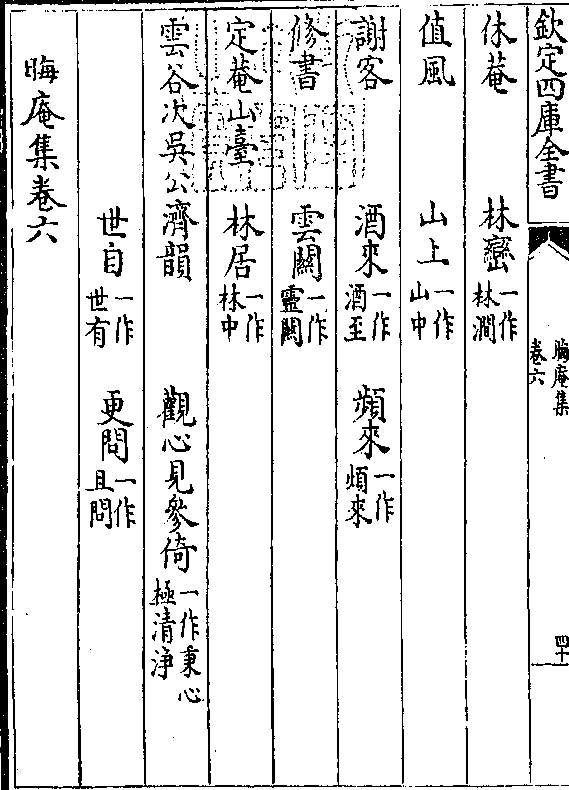 欽定四庫全書
晦庵集
卷六
四十
休菴 林巒一作林澗
值風 山上一作山中
謝客 酒來一作酒至 頻來一作煩來
修書 雲關一作靈關
定菴山臺 林居一作林中
雲谷次吳公濟韻 觀心見參倚一作秉心極清淨
世自一作世有 更問一作且問
晦庵集卷六